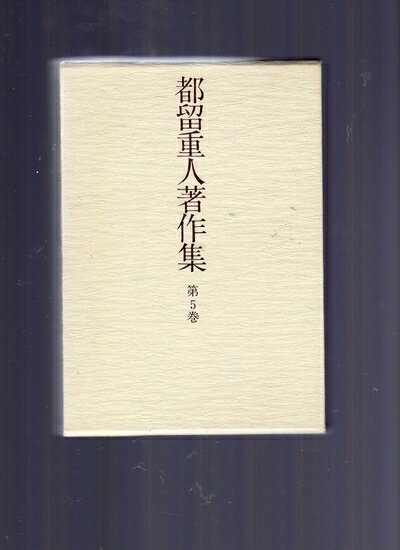 都留重人著作集
第5巻